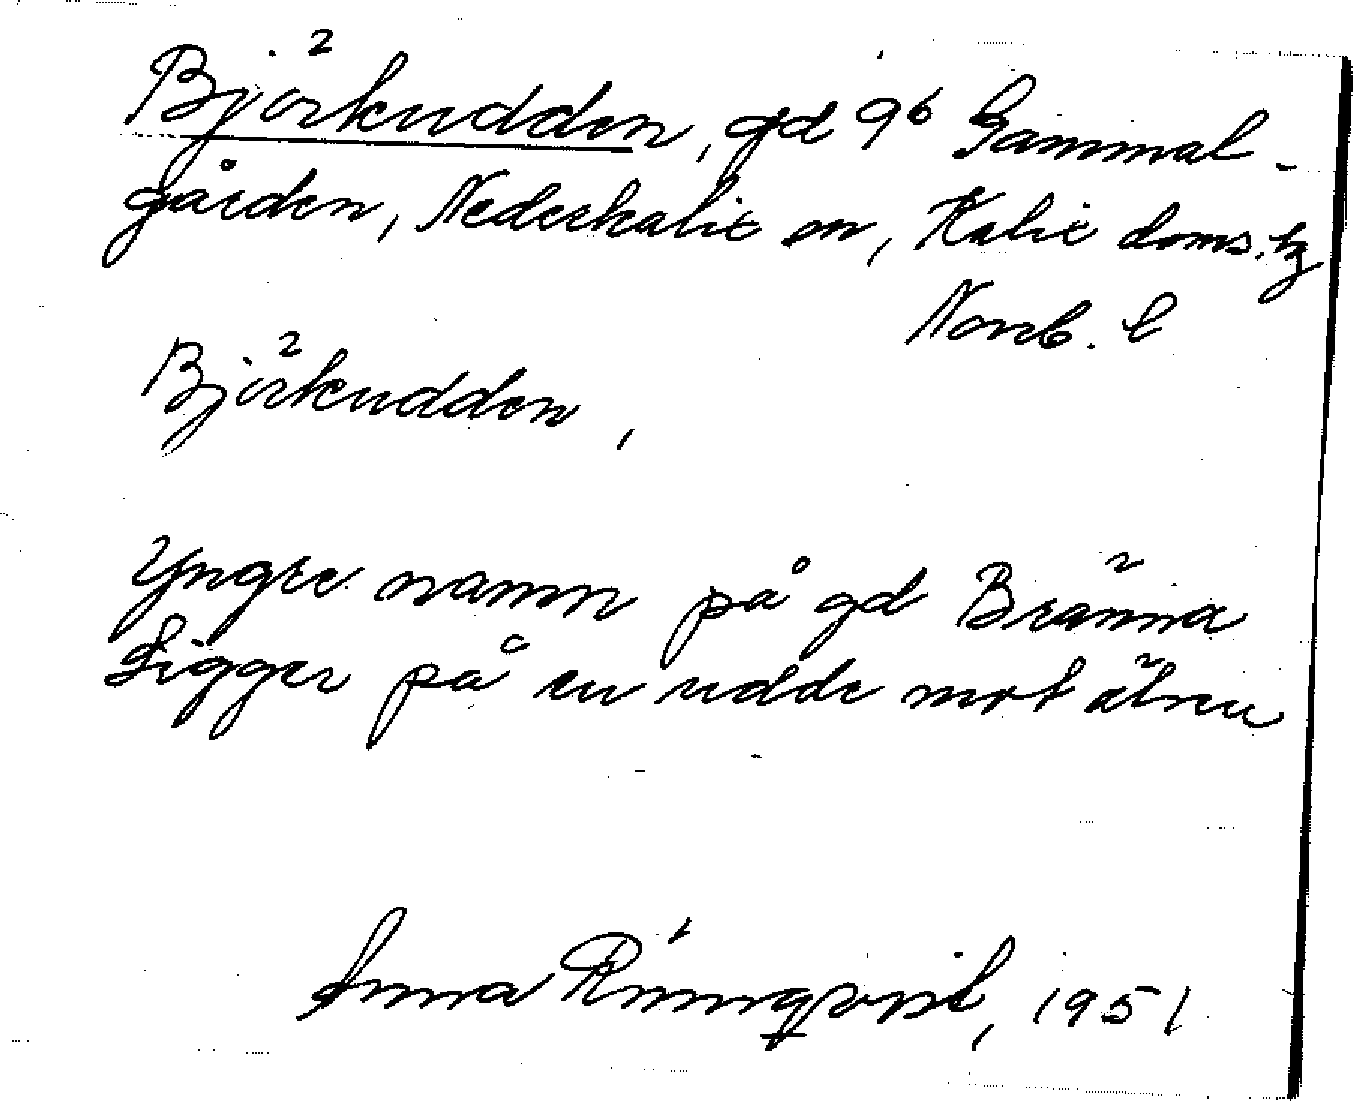 Björkudden, gd 9⁶ Gammal-
gården, Nederkalix sn, Kalix doms. tg
Norrb. l
Björkudden,
Yngre namn på gd Bränna
Ligger på en udde mot älven
Anna Rönnqvist, 1951